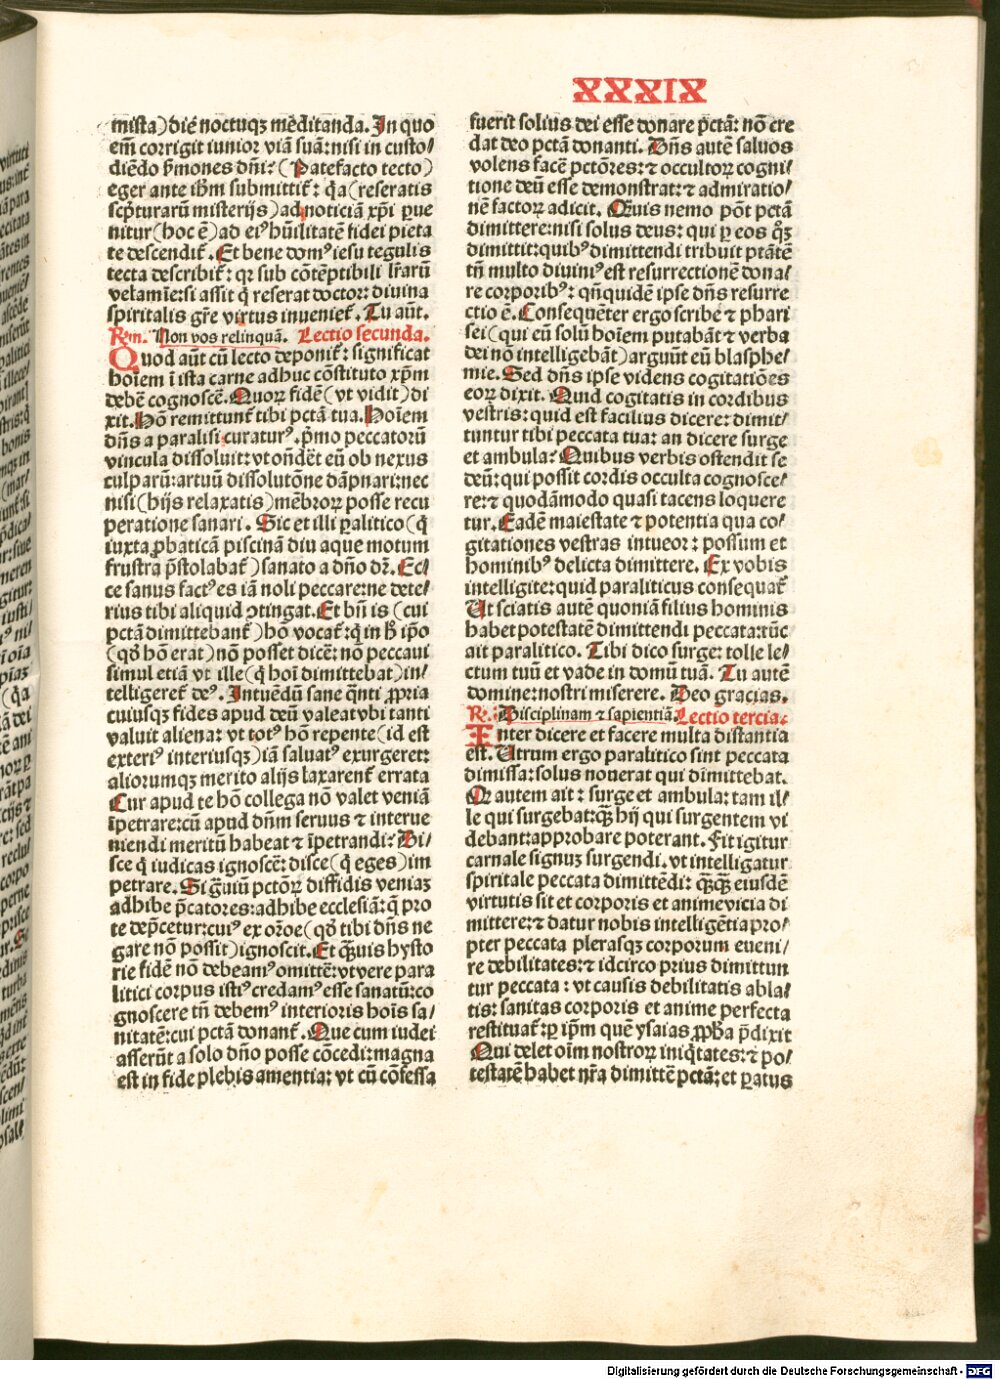 XXXIX
mista) die noctuqꝫ mēditanda. In quo
em̄ corrigit iunior viā suā: nisi in custo/
diēdo ꝑmones dn̄i: (Patefacto tecto)
eger ante ihm̄ submittit᷑: qꝛa (reseratis
scpͥturarū misterijs) ad noticiā xp̄i ꝑue
nitur (hoc ē) ad eiꝰ hūilitatē fidei pieta
te descendit᷑. Et bene domꝰ iesu tegulis
tecta describit᷑: qꝛ sub cōtēptibili lr̄arū
velamīe: si assit q̇ reserat doctor: diuina
spiritalis gr̄e virtus inueniet᷑. Tu aūt.
Rm. Non vos relinquā. Lectio secunda.
Quod aūt cū lecto deponit᷑: significat
hoīem ī ista carne adhuc cōstituto xp̄m
debē cognoscē. Quorꝝ fidē (vt vidit) di
xit. Hō remittunt᷑ tibi pctā tua. Hoīem
dn̄s a paralisi curaturꝰ. pͥmo peccatorū
vincula dissoluit: vt on̄dēt eū ob nexus
culparū: artuū dissolutōne dāpnari: nec
nisi (hijs relaxatis) mēbrorꝝ posse recu
peratione sanari. Sic et illi ꝑalitico (q̇
iuxta ꝓbaticā piscinā diu aque motum
frustra p̄stolabat᷑) sanato a dn̄o dꝛ. Ec/
ce sanus factꝰ es iā noli peccare: ne dete/
rius tibi aliquid ꝯtingat. Et bn̄ is (cui
pctā dimittebant᷑) hō vocat᷑: q̇ in hͦ ip̄o
(qꝺ hō erat) nō posset dicē: nō peccaui
simul etiā vt ille (q̇ hoī dimittebat) in/
telligeret᷑ deꝰ. Intuēdū sane q̄nti ꝓpria
cuiusqꝫ fides apud deū valeat vbi tanti
valuit aliena: vt totꝰ hō repente (id est
exteriꝰ interiusqꝫ) iā saluatꝰ exurgeret:
aliorumqꝫ merito alijs laxarent᷑ errata
Cur apud te hō collega nō valet veniā
īpetrare: cū apud dn̄m seruus ⁊ interue
niendi meritū habeat ⁊ īpetrandi? Di/
sce q̇ iudicas ignoscē: disce (q̇ eges) im
petrare. Si gͣuiū pctōrꝝ diffidis veniaꝫ
adhibe p̄catores: adhibe ecclesiā: q̄ pro
te dep̄cetur: cuiꝰ ex oꝛ̄oe (qꝺ tibi dn̄s ne
gare nō possit) ignoscit. Et qͣꝫuis hysto
rie fidē nō debeamꝰ omittē: vt vere para
litici corpus istiꝰ credamꝰ esse sanatū: co
gnoscere tn̄ debemꝰ interioris hoīs sa/
nitatē: cui pctā donant᷑. Que cum iudei
asserūt a solo dn̄o posse cōcedi: magna
est in fide plebis amentia: vt cū cōfessa
fuerit solius dei esse donare pctā: nō cre
dat deo pctā donanti. Dn̄s autē saluos
volens facē pctōres: ⁊ occultorꝝ cogni/
tione deū esse demonstrat: ⁊ admiratio/
nē factorꝝ adicit. Quis nemo pōt pctā
dimittere: nisi solus deus: qui ꝑ eos qͦꝫ
dimittit: quibꝰ dimittendi tribuit ptātē
tn̄ multo diuiniꝰ est resurrectionē dona/
re corporibꝰ: qn̄quidē ipse dn̄s resurre
ctio ē. Consequēter ergo scribe ⁊ phari
sei (qui eū solū hoīem putabāt ⁊ verba
dei nō intelligebāt) arguūt eū blasphe/
mie. Sed dn̄s ipse videns cogitatiōes
eorꝝ dixit. Quid cogitatis in cordibus
vestris: quid est facilius dicere: dimit/
tuntur tibi peccata tua: an dicere surge
et ambula? Quibus verbis ostendit se
deū: qui possit cordis occulta cognosce/
re: ⁊ quodāmodo quasi tacens loquere
tur. Eadē maiestate ⁊ potentia qua co/
gitationes vestras intueor: possum et
hominibꝰ delicta dimittere. Ex vobis
intelligite: quid paraliticus consequat᷑
Ut sciatis autē quoniā filius hominis
habet potestatē dimittendi peccata: tūc
ait paralitico. Tibi dico surge: tolle le/
ctum tuū et vade in domū tuā. Tu autē
domine: nostri miserere. Deo gracias.
R. Disciplinam ⁊ sapientiā Lectio tercia.
Inter dicere et facere multa distantia
est. Utrum ergo paralitico sint peccata
dimissa: solus nouerat qui dimittebat.
Qꝛ autem ait: surge et ambula: tam il/
le qui surgebat: qͣꝫ hij qui surgentem vi
debant: approbare poterant. Fit igitur
carnale signuꝫ surgendi. vt intelligatur
spiritale peccata dimittēdi: qͣꝫqͣꝫ eiusdē
virtutis sit et corporis et anime vicia di
mittere: ⁊ datur nobis intelligētia pro/
pter peccata plerasqꝫ corporum eueni/
re debilitates: ⁊ idcirco prius dimittun
tur peccata: vt causis debilitatis abla/
tis: sanitas corporis et anime perfecta
restituat᷑: ꝑ ip̄m quē ysaias ꝓpͪa p̄dixit
Qui delet oīm nostrorꝝ iniq̇tates: ⁊ po/
testatē habet nr̄a dimittē pctā: et ꝑatus
Digitalisierung gefördert durch die Deutsche Forschungsgemeinschaft - DFG